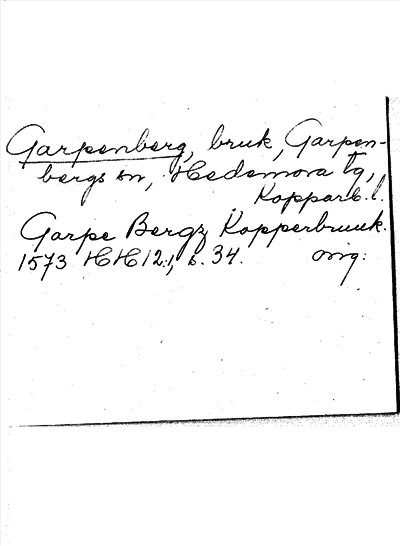 Garpenberg, bruk, Garpen-
bergs sn, Hedemora tg,
Kopparb. l.
Garpe Bergz Kopperbruuk.
1573 HH 12:1, s. 34. orig.